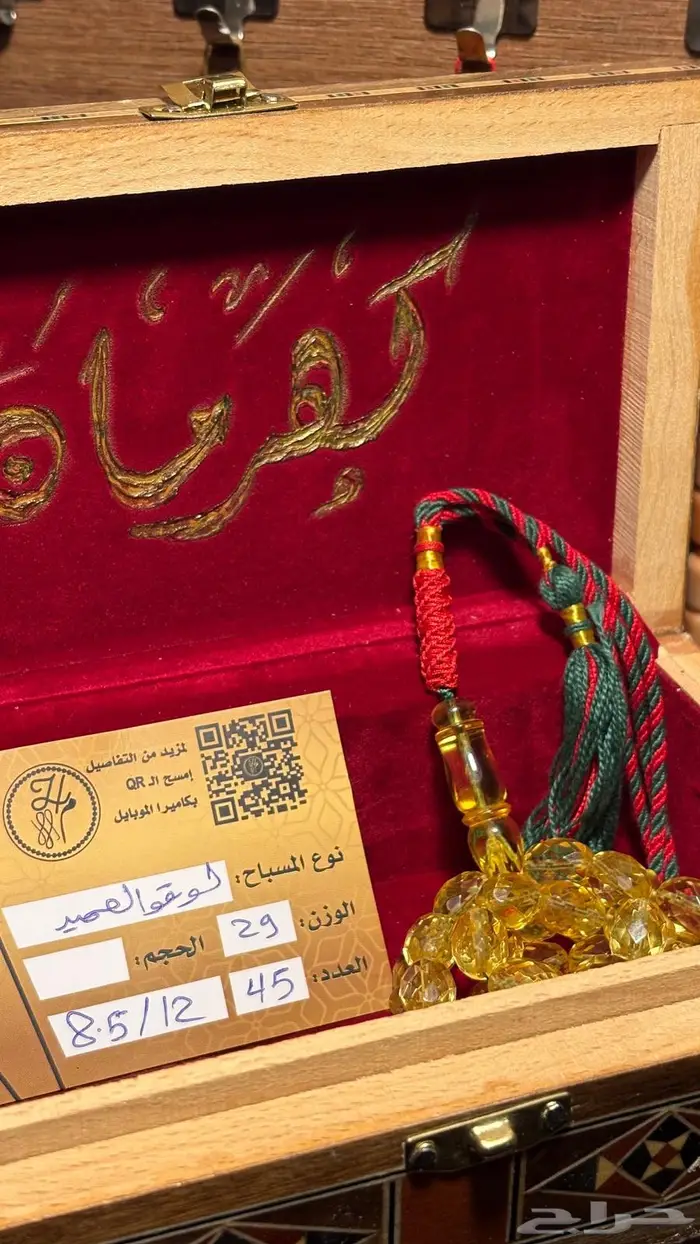 كهرمان
لمزيد من التفاصيل
إمسح الـ QR
بكاميرا الموبايل
نوع المسباح:
الوزن: 29
الحجم:
العدد: 45 8.5/12
حراج